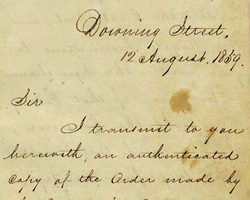 Downing Street,
12 August. 1859.
Sir
I transmit to you
herewith, an authenticated
copy of the Order made by